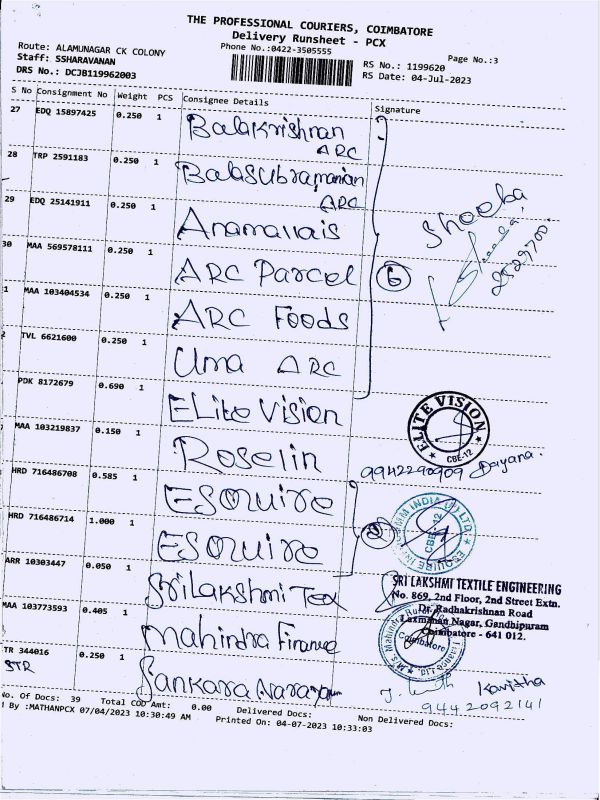 THE PROFESSIONAL COURIERS, COIMBATORE
Delivery Runsheet - PCX
Phone No.:0422-3505555
Page No.:3
Route: ALAMUNAGAR CK COLONY
Staff: SSHARAVANAN
DRS No.: DCJB119962003
RS No.: 1199620
RS Date: 04-Jul-2023
S No Consignment No Weight PCS Consignee Details Signature
27 EDQ 15897425 0.250 1 Balakrishnan ARC
28 TRP 2591183 0.250 1 Balasubramanian ARC
29 EDQ 25141911 0.250 1 Anamallais
30 MAA 569578111 0.250 1 ARC Parcel
1 MAA 103404534 0.250 1 ARC Foods
TVL 6621600 0.250 1 Uma ARC
6
Sheeba
PDK 8172679 0.690 1 Elite Vision
ELITE VISION
CBE-12
MAA 103219837 0.150 1 Roselin
9942290909 Dayana.
HRD 716486708 0.585 1 Esquire
HRD 716486714 1.000 1 Esquire
2
CBE-12
ARR 10303447 0.050 1 Srilakshmi Tex
SRI LAKSHMI TEXTILE ENGINEERING
No. 869, 2nd Floor, 2nd Street Extn.
Dr. Radhakrishnan Road
Laxmanan Nagar, Gandhipuram
Coimbatore - 641 012.
MAA 103773593 0.405 1 Mahindra Finance
Coimbatore
TR 344016 0.250 1 Sankara Narayan
STR
Kavitha
9442092141
No. Of Docs: 39 Total COD Amt: 0.00 Delivered Docs: Non Delivered Docs:
d By :MATHANPCX 07/04/2023 10:30:49 AM Printed On: 04-07-2023 10:33:03